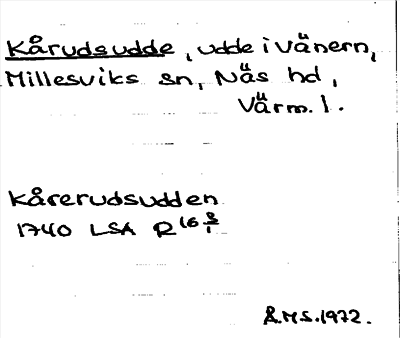 Kårudsudde, udde i Vänern,
Millesviks sn, Näs hd,
Värm. l.
Kårerudsudden
1740 LSA R 16 3/1
Å.M.S. 1972.